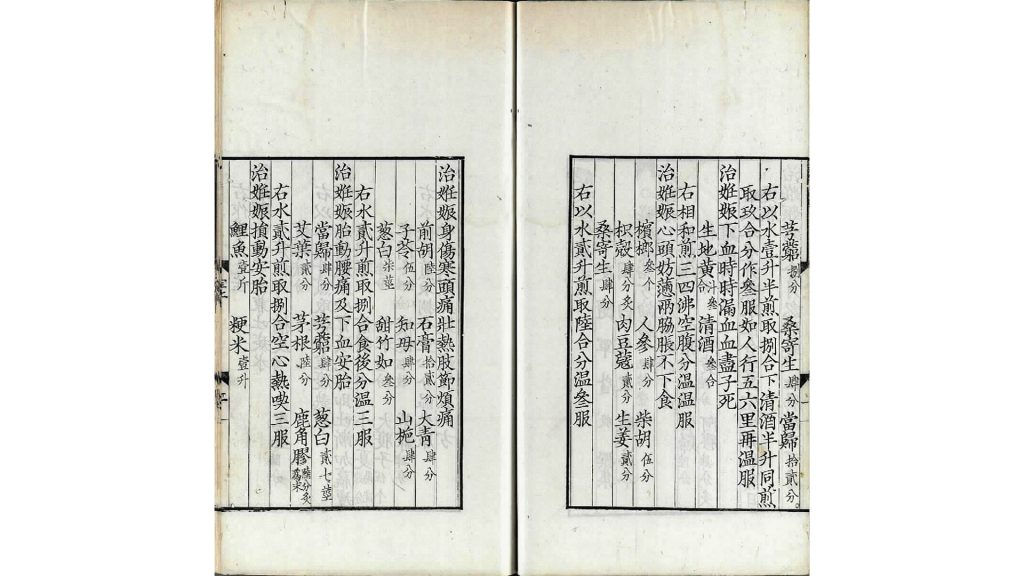 芎藭捌分 桑寄生肆分 當歸拾貳分
右以水壹升半煎取捌合下清酒半升同煎
取玖合分作叄服如人行五六里再温服
治姙娠下血時時漏血血盡子死
生地黄汁叄合 清酒叄合
右相和煎三四沸空腹分温服
治姙娠心頭妨懣兩脇脹不下食
檳榔叄个 人參肆分 柴胡伍分
枳殼肆分炙 肉豆蔻貳分 生姜貳分
桑寄生肆分
右以水貳升煎取陸合分温叄服
治姙娠身傷寒頭痛壯熱肢節煩痛
前胡陸分 石膏拾貳分 大青肆分
子芩伍分 知母肆分 山梔肆分
葱白柒莖 甜竹如叄分
右水貳升煎取捌合食後分温三服
治姙娠胎動腰痛及下血安胎
當歸肆分 芎藭肆分 葱白貳七莖
艾葉貳分 茅根陸分 鹿角膠陸分炙為末
右水貳升煎取捌合空心熱喫三服
治姙娠損動安胎
鯉魚壹斤 粳米壹升